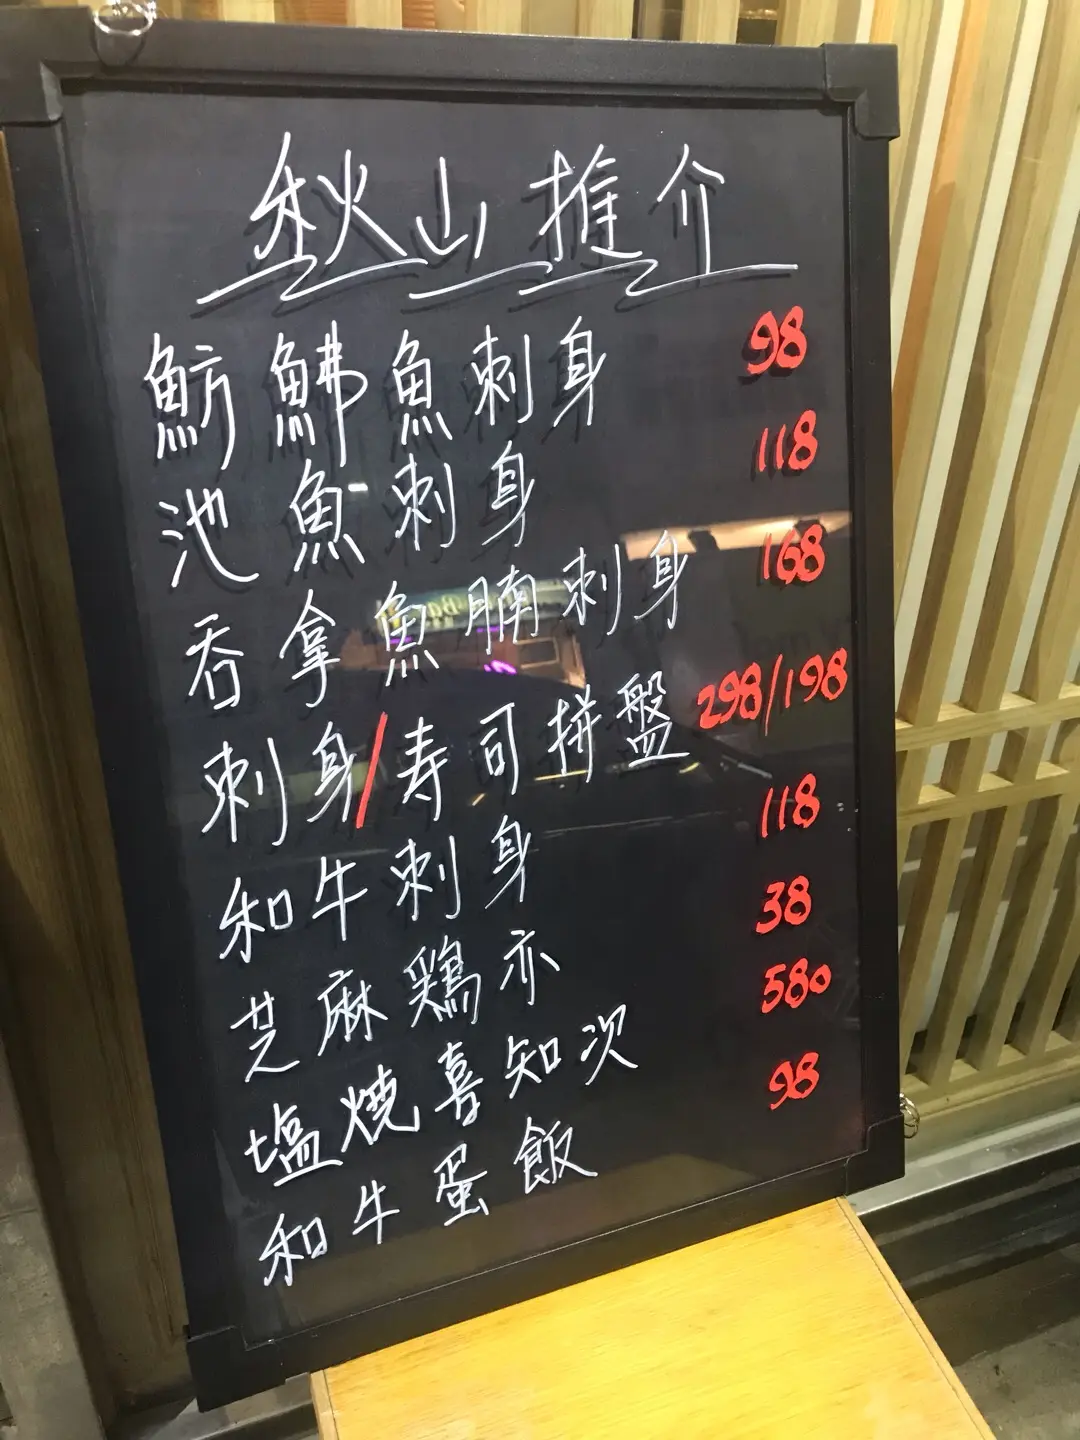 秋山推介
魴鮄魚刺身 98
池魚刺身 118
吞拿魚腩刺身 168
刺身/寿司拼盤 298/198
和牛刺身 118
芝麻鶏亦 38
塩燒喜知次 580
和牛蛋飯 98